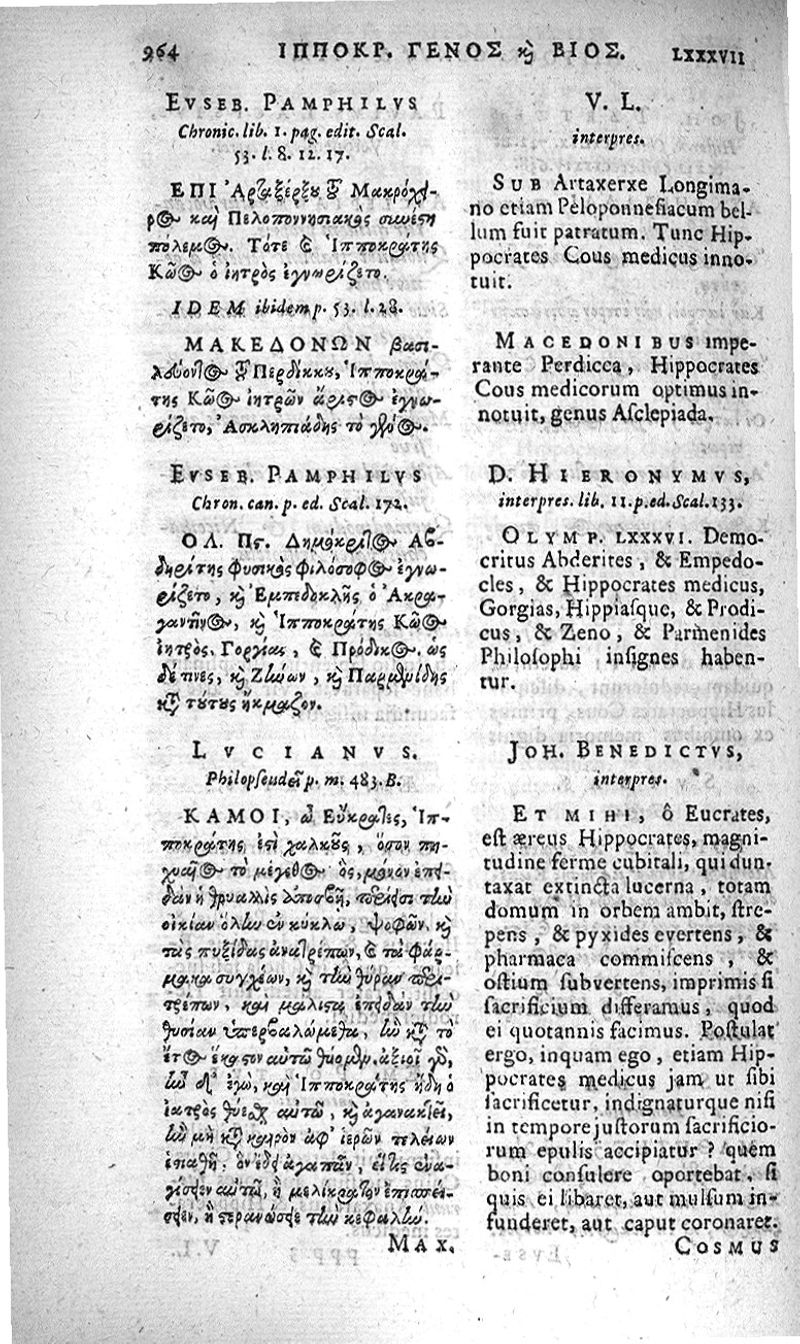 964 ΙΠΠΟΚΡ. ΓΕΝΟΣ ϗ ΒΙΟΣ. LXXXVII
EVSEB. PAMPHILVS
Chronic. lib. 1. pag. edit. Scal.
53. l. 8. 12. 17.
ΕΠΙ Ἀρταξέρξου τοῦ Μακρόχει-
ρος καὶ Πελοποννησιακὸς συνέστη
πόλεμος. Τότε ϗ Ἱπποκράτης
Κῶος ὁ ἰητρὸς ἐγνωρίζετο.
IDEM ibidem p. 53. l. 28.
ΜΑΚΕΔΟΝΩΝ βασι-
λεύοντος τοῦ Περδίκκου, Ἱπποκρά-
της Κῶος ἰητρῶν ἄριστος ἐγνω-
ρίζετο, Ἀσκληπιάδης τὸ γένος.
EVSEB. PAMPHILVS
Chron. can. p. ed. Scal. 172.
ΟΛ. Πϛ. Δημόκριτος Αβ-
δηρίτης φυσικὸς φιλόσοφος ἐγνω-
ρίζετο, ϗ Ἐμπεδοκλῆς ὁ Ἀκρα-
γαντῖνος, ϗ Ἱπποκράτης Κῶος
ἰητρὸς. Γοργίας, ϗ Πρόδικος. ὡς
δέ τινες, ϗ Ζήνων, ϗ Παρμενίδης
κατὰ τούτους ἤκμαζον.
LVCIANVS.
Philopseudei p. m. 483. B.
ΚΑΜΟΙ, ὦ Εὔκρατες, Ἱπ-
ποκράτης ἐστὶ χαλκοῦς, ὅσον πη-
χυαῖος τὸ μέγεθος ὃς, μόνον ἐπει-
δὰν ἡ θρυαλλὶς ἀποσβῇ, περίεισι τὴν
οἰκίαν ὅλην ἐν κύκλῳ, ψοφῶν, ϗ
τὰς πυξίδας ἀνατρέπων, ϗ τὰ φάρ-
μακα συγχέων, ϗ τὴν θύραν περι-
τρέπων, καὶ μάλιστα ἐπειδὰν τὴν
θυσίαν ὑπερβαλώμεθα, ἣν κατὰ τὸ
ἔτος ἕκαστον αὐτῷ θύομεν. ἀξιοῖ γὰρ,
ἦν δ' ἐγὼ, καὶ Ἱπποκράτης ἤδη ὁ
ἰατρὸς θύεσθαι αὐτῷ, ϗ ἀγανακτεῖ,
ἢν μὴ κατὰ καιρὸν ἀφ' ἱερῶν τελείων
ἑστιαθῇ· ὃν ἔδει ἀγαπᾶν, εἴ τις ἐνα-
γίσειεν αὐτῷ, ἢ μελίκρατον ἐπισπεί-
σειεν, ἢ στεφανώσειε τὴν κεφαλήν.
MAX.
V. L.
interpres.
SUB Artaxerxe Longima-
no etiam Peloponneſiacum bel-
lum fuit patratum. Tunc Hip-
pocrates Cous medicus inno-
tuit.
MACEDONIBUS impe-
rante Perdicca, Hippocrates
Cous medicorum optimus in-
notuit, genus Aſclepiada.
D. HIERONYMVS,
interpres. lib. 11. p. ed. Scal. 133.
OLYMP. LXXXVI. Demo-
critus Abderites, & Empedo-
cles, & Hippocrates medicus,
Gorgias, Hippiaſque, & Prodi-
cus, & Zeno, & Parmenides
Philoſophi inſignes haben-
tur.
JOH. BENEDICTVS,
interpres.
ET MIHI, ô Eucrates,
eſt æreus Hippocrates, magni-
tudine ferme cubitali, qui dun-
taxat extincta lucerna, totam
domum in orbem ambit, ſtre-
pens, & pyxides evertens, &
pharmaca commiſcens, &
oſtium ſubvertens, imprimis ſi
ſacrificium differamus, quod
ei quotannis facimus. Poſtulat
ergo, inquam ego, etiam Hip-
pocrates medicus jam ut ſibi
ſacrificetur, indignaturque niſi
in tempore juſtorum ſacrificio-
rum epulis accipiatur? quem
boni conſulere oportebat, ſi
quis ei libaret, aut mulſum in-
funderet, aut caput coronaret.
COSMUS